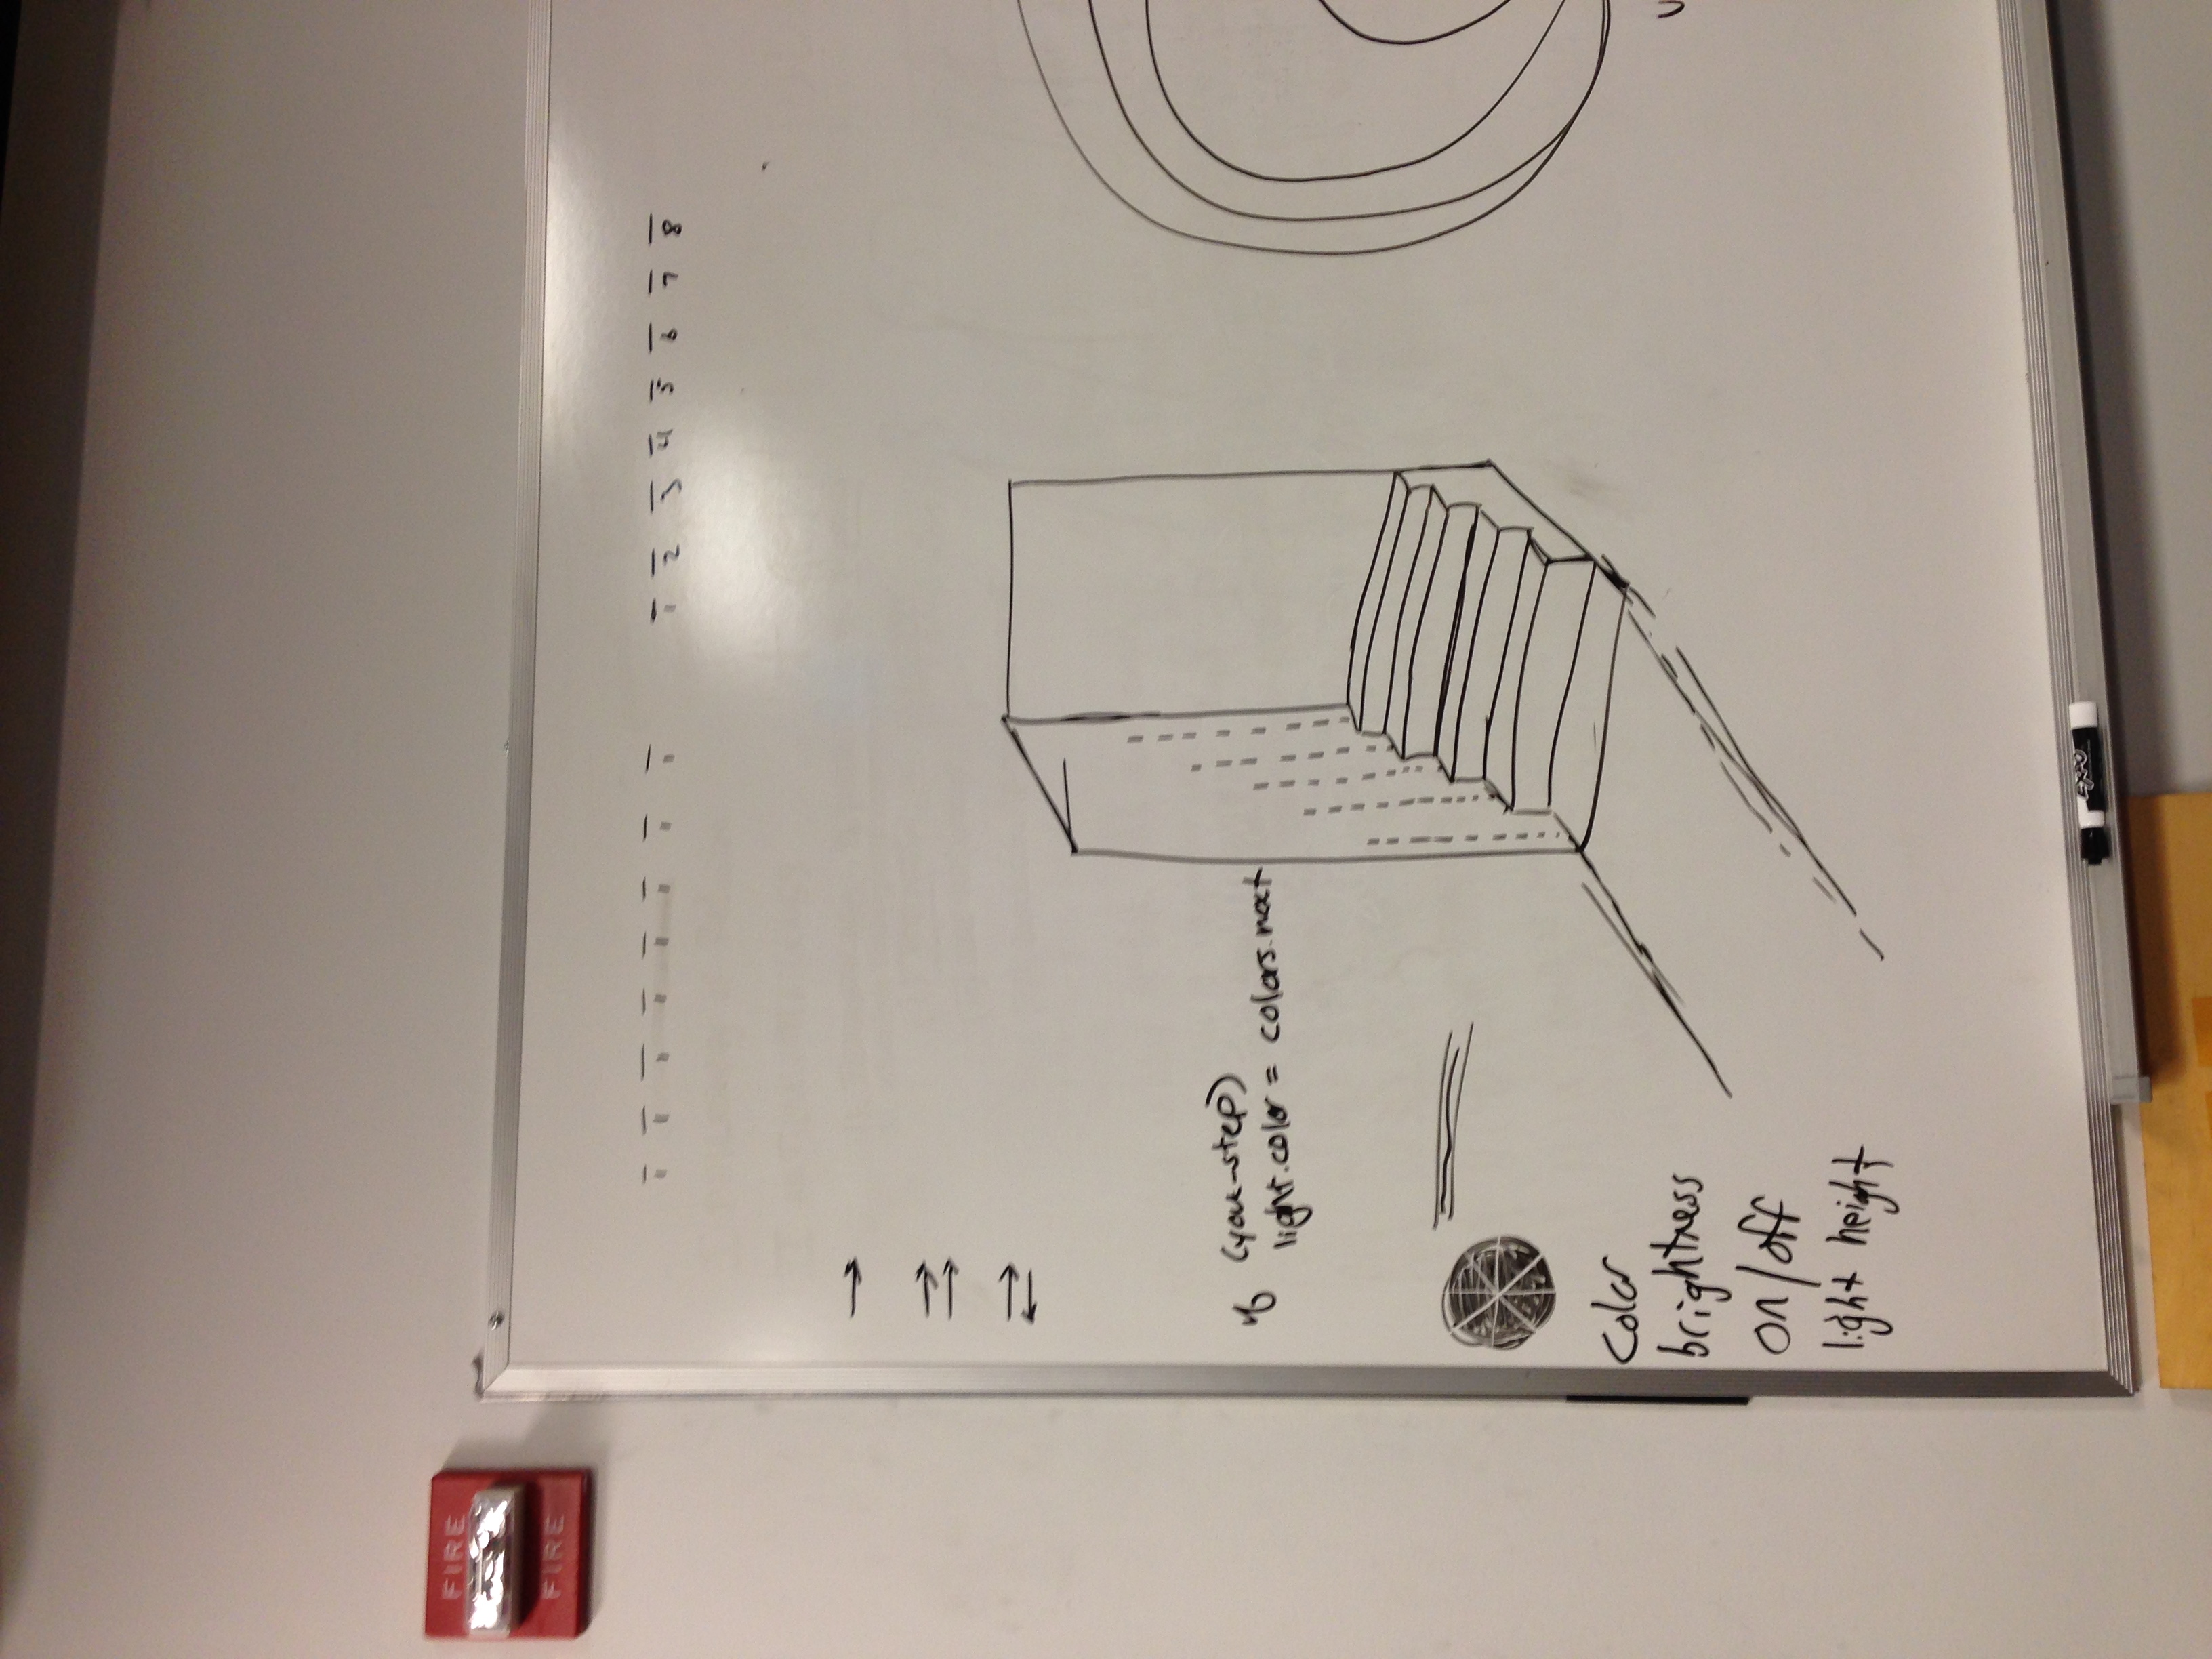 FIRE
FIRE
1 1 1 1 1 1 1 1
1 2 3 4 5 6 7 8
if (you-step)
light.color = colors.next
Color
brightness
on/off
light height
EXPO